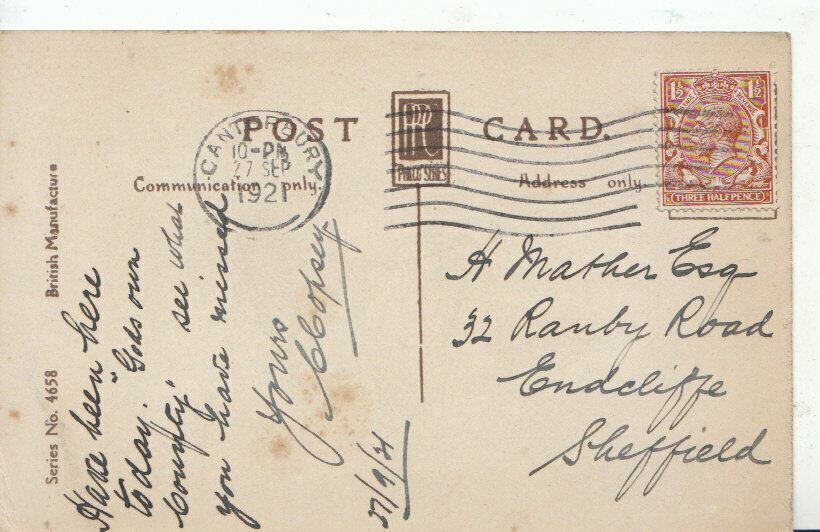 POST CARD.
PRC
PHOTO SERIES
Communication only.
Address only
CANTERBURY
10-PM
27 SEP
1921
1½ 1½
THREE HALFPENCE
British Manufacture
Series No. 4658
Have been here
today. "Gods own
County" see what
you have missed
Yours
CCopsey
27/9/21
H Mather Esq
32 Ranby Road
Endcliffe
Sheffield